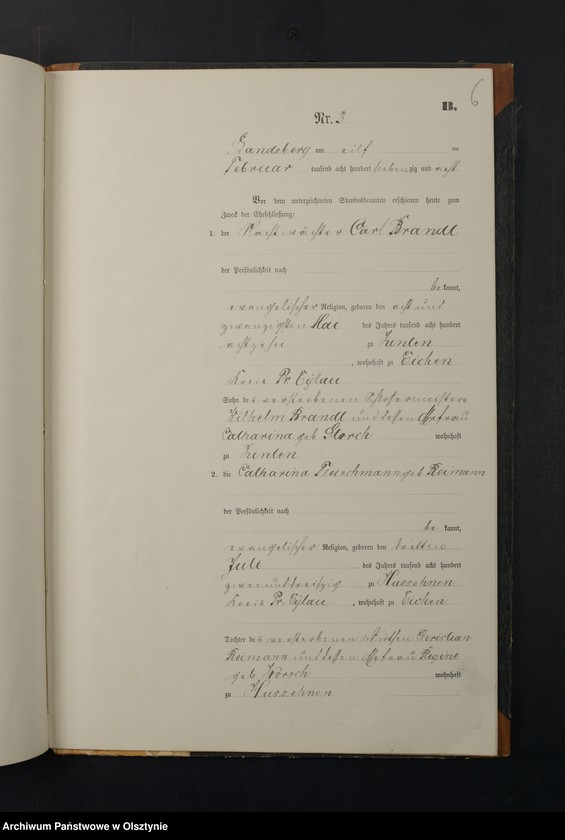 B. 6
Nr. 3
Landsberg am eilf ten
Februar tausend acht hundert siebenzig und acht
Vor dem unterzeichneten Standesbeamten erschienen heute zum
Zweck der Eheschließung:
1. der Nachtwächter Carl Brandt
der Persönlichkeit nach
be kannt,
evangelischer Religion, geboren den acht und
zwanzigsten Mai des Jahres tausend acht hundert
achtzehn zu Zinten
, wohnhaft zu Eichen
Kreis Pr. Eylau
Sohn des verstorbenen Schlossermeisters
Wilhelm Brandt und dessen Ehefrau
Catharina geb. Storch wohnhaft
zu Zinten
2. die Catharina Fleischmann geb. Reimann
der Persönlichkeit nach
be kannt,
evangelischer Religion, geboren den dritten
Juli des Jahres tausend acht hundert
zwei und dreißig zu Hussehnen
Kreis Pr. Eylau , wohnhaft zu Eichen
Tochter des verstorbenen Christian
Reimann und dessen Ehefrau Regine
geb. wohnhaft
zu Hussehnen
Archiwum Państwowe w Olsztynie